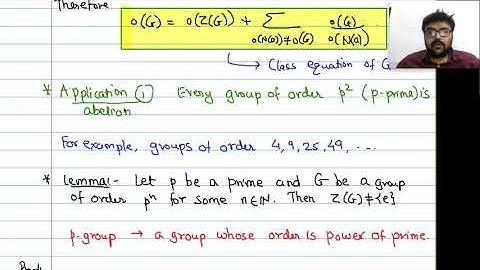 Therefore
o(G) = o(Z(G)) + ∑ o(G)
o(N(a))≠o(G) o(N(a))
↳ Class equation of G
* Application ① Every group of order p² (p-prime) is
abelian
For example, groups of order 4, 9, 25, 49, ...
* Lemma:- Let p be a prime and G be a group
of order pⁿ for some n∈ℕ. Then Z(G)≠{e}
p-group → a group whose order is power of prime.